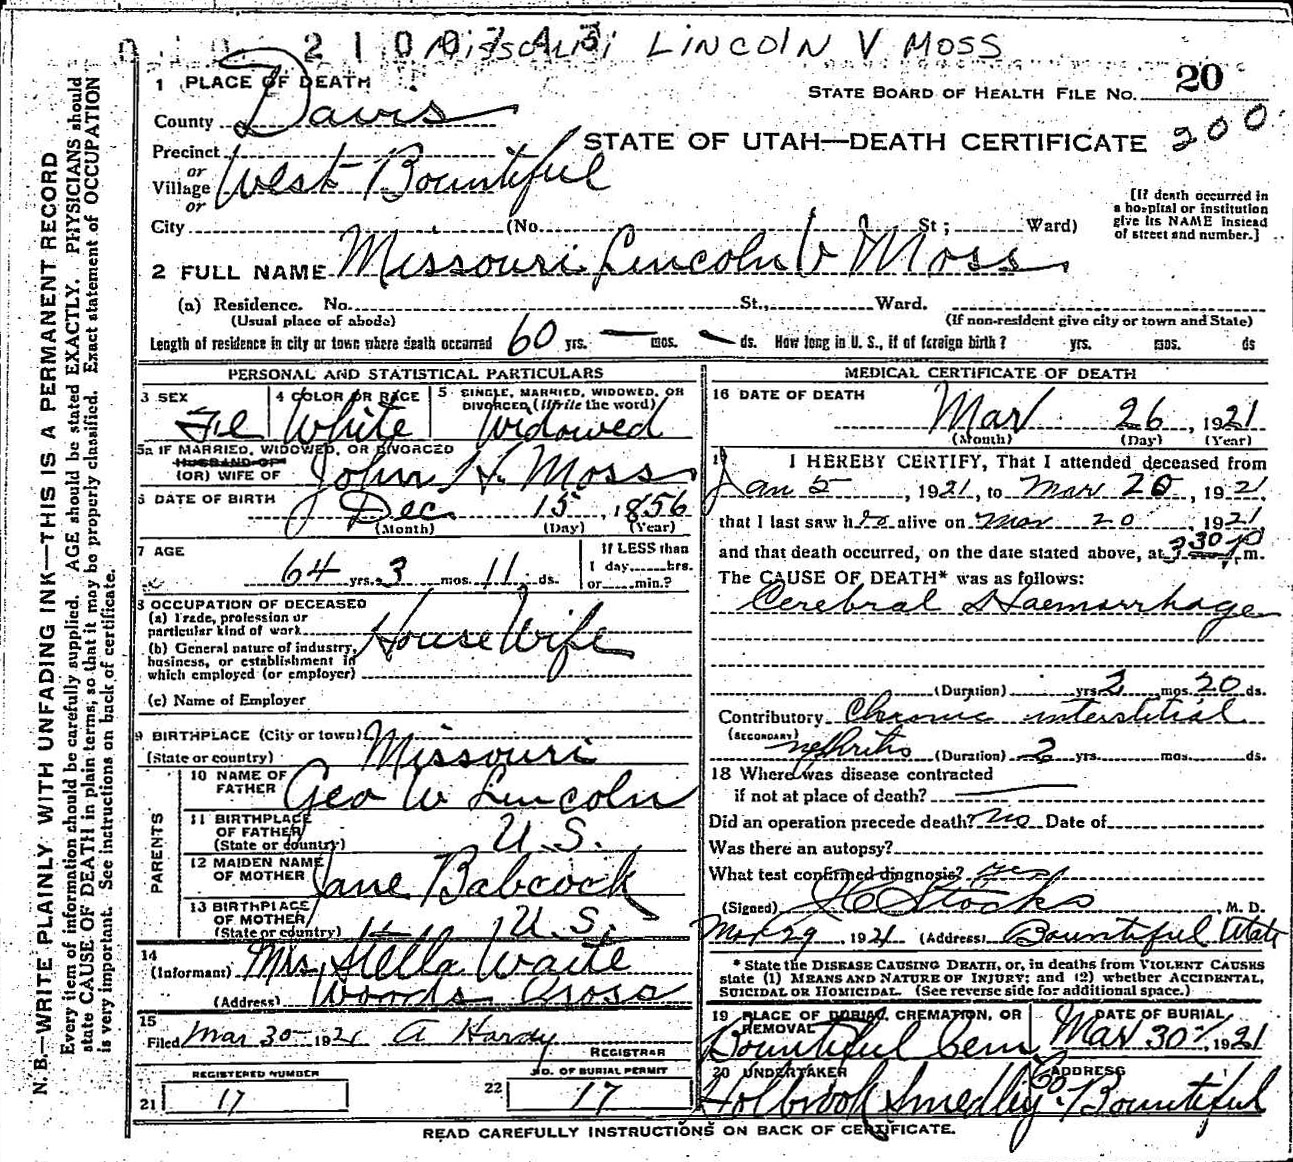 2100745 Missouri LINCOLN V MOSS
1 PLACE OF DEATH
STATE BOARD OF HEALTH FILE NO. 20
County Davis
STATE OF UTAH—DEATH CERTIFICATE 200
Precinct
or
Village West Bountiful
or
[If death occurred in
a hospital or institution
give its NAME instead
of street and number.]
City (No. St; Ward)
2 FULL NAME Missouri Lincoln V Moss
(a) Residence. No. St., Ward.
(Usual place of abode) (If non-resident give city or town and State)
Length of residence in city or town where death occurred 60 yrs. — mos. — ds. How long in U. S., if of foreign birth? yrs. mos. ds
PERSONAL AND STATISTICAL PARTICULARS
3 SEX Fe 4 COLOR OR RACE White 5 SINGLE, MARRIED, WIDOWED, OR
DIVORCED (Write the word) Widowed
5a IF MARRIED, WIDOWED, OR DIVORCED
HUSBAND OF
(OR) WIFE OF John H. Moss
6 DATE OF BIRTH Dec. 15, 1856
(Month) (Day) (Year)
7 AGE 64 yrs. 3 mos. 11 ds.
If LESS than
1 day hrs.
or min.?
8 OCCUPATION OF DECEASED
(a) Trade, profession or
particular kind of work House Wife
(b) General nature of industry,
business, or establishment in
which employed (or employer)
(c) Name of Employer
9 BIRTHPLACE (City or town)
(State or country) Missouri
PARENTS
10 NAME OF
FATHER Geo W Lincoln
11 BIRTHPLACE
OF FATHER
(State or country) U.S.
12 MAIDEN NAME
OF MOTHER Jane Babcock
13 BIRTHPLACE
OF MOTHER
(State or country) U.S.
14
(Informant) Mrs Stella Waite
(Address) Woods Cross
15
Filed Mar 30- 1921 A Hardy
REGISTRAR
REGISTERED NUMBER
21 17
NO. OF BURIAL PERMIT
22 17
MEDICAL CERTIFICATE OF DEATH
16 DATE OF DEATH
Mar 26, 1921
(Month) (Day) (Year)
17 I HEREBY CERTIFY, That I attended deceased from
Jan 5, 1921, to Mar 20, 1921,
that I last saw h alive on Mar 20 1921,
and that death occurred, on the date stated above, at 3 30 p m.
The CAUSE OF DEATH* was as follows:
Cerebral Haemorrhage
(Duration) yrs. 2 mos. 20 ds.
Contributory Chronic interstitial
(SECONDARY)
nephritis (Duration) 2 yrs. mos. ds.
18 Where was disease contracted
if not at place of death?
Did an operation precede death? No Date of
Was there an autopsy?
What test confirmed diagnosis?
(Signed) Stocks M. D.
Mar 29, 1921 (Address) Bountiful Utah
* State the DISEASE CAUSING DEATH, or, in deaths from VIOLENT CAUSES
state (1) MEANS AND NATURE OF INJURY; and (2) whether ACCIDENTAL,
SUICIDAL OR HOMICIDAL. (See reverse side for additional space.)
19 PLACE OF BURIAL, CREMATION, OR
REMOVAL
Bountiful Cem
DATE OF BURIAL
Mar 30, 1921
20 UNDERTAKER ADDRESS
Holbrook Smedley Co. Bountiful
READ CAREFULLY INSTRUCTIONS ON BACK OF CERTIFICATE.
N. B.—WRITE PLAINLY WITH UNFADING INK—THIS IS A PERMANENT RECORD
Every item of information should be carefully supplied. AGE should be stated EXACTLY. PHYSICIANS should
state CAUSE OF DEATH in plain terms, so that it may be properly classified. Exact statement of OCCUPATION
is very important. See instructions on back of certificate.